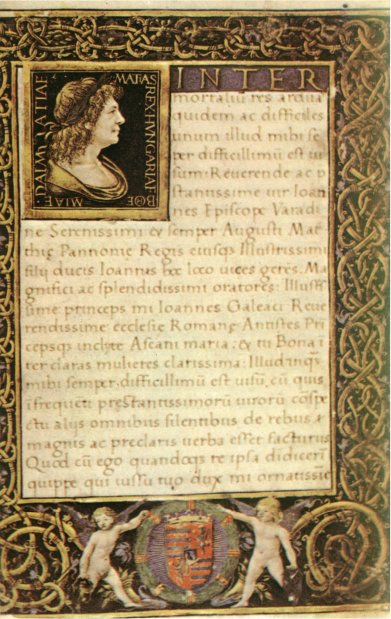 MATIAS REX HVNGARIAE BOE
MIAE DALMATIAE
INTER
mortaliū res ardua
quidem ac difficiles
unum illud mihi sē
per difficillimū est ui
sum: Reuerende ac p
stantissime uir Ioan
nes Episcope Varadi
ne Serenissimi et semper Augusti Mat
thię Pannonię Regis eiusq illustrissimi
filij ducis Ioannis hoc loco uices gerēs: Ma
gnifici ac splendidissimi oratores: Illuss
sime princeps mi Ioannes Galeaci Reue
rendissime ecclesie Romanę Antistes Pri
cepsq inclyte Ascani maria: et tu Bona i
ter claras mulieres clarissima: Illud inqs
mihi semper difficillimū est uisū, cū quis
i frequēti prestantissimorū uirorū cōspe
ctu alijs omnibus silentibus de rebus
magnis ac preclaris uerba esset facturus
Quod cū ego quandoqs re ipsa didicerī
quippe qui iussu tuo dux mi ornatissie